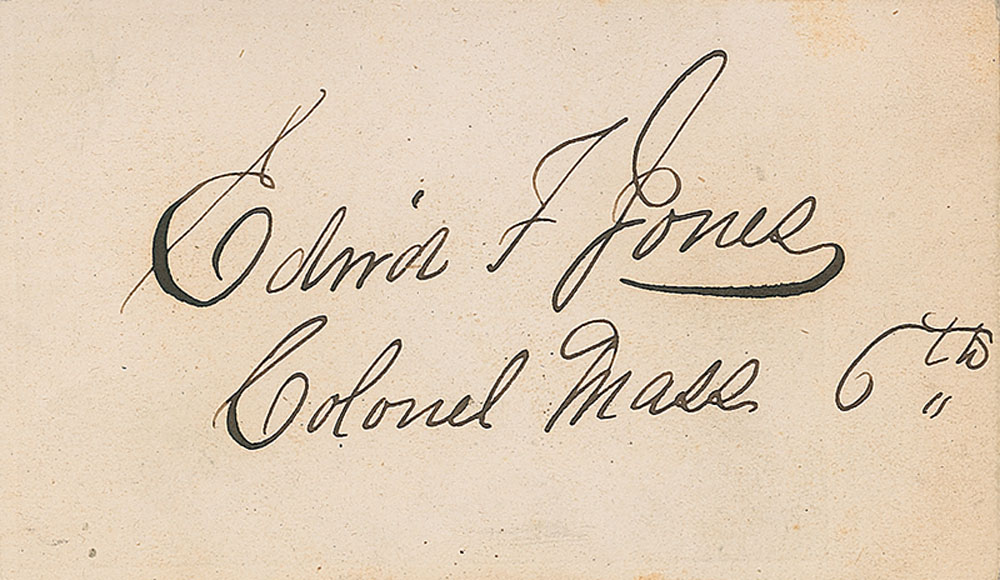 Edw'd F Jones
Colonel Mass 6th "